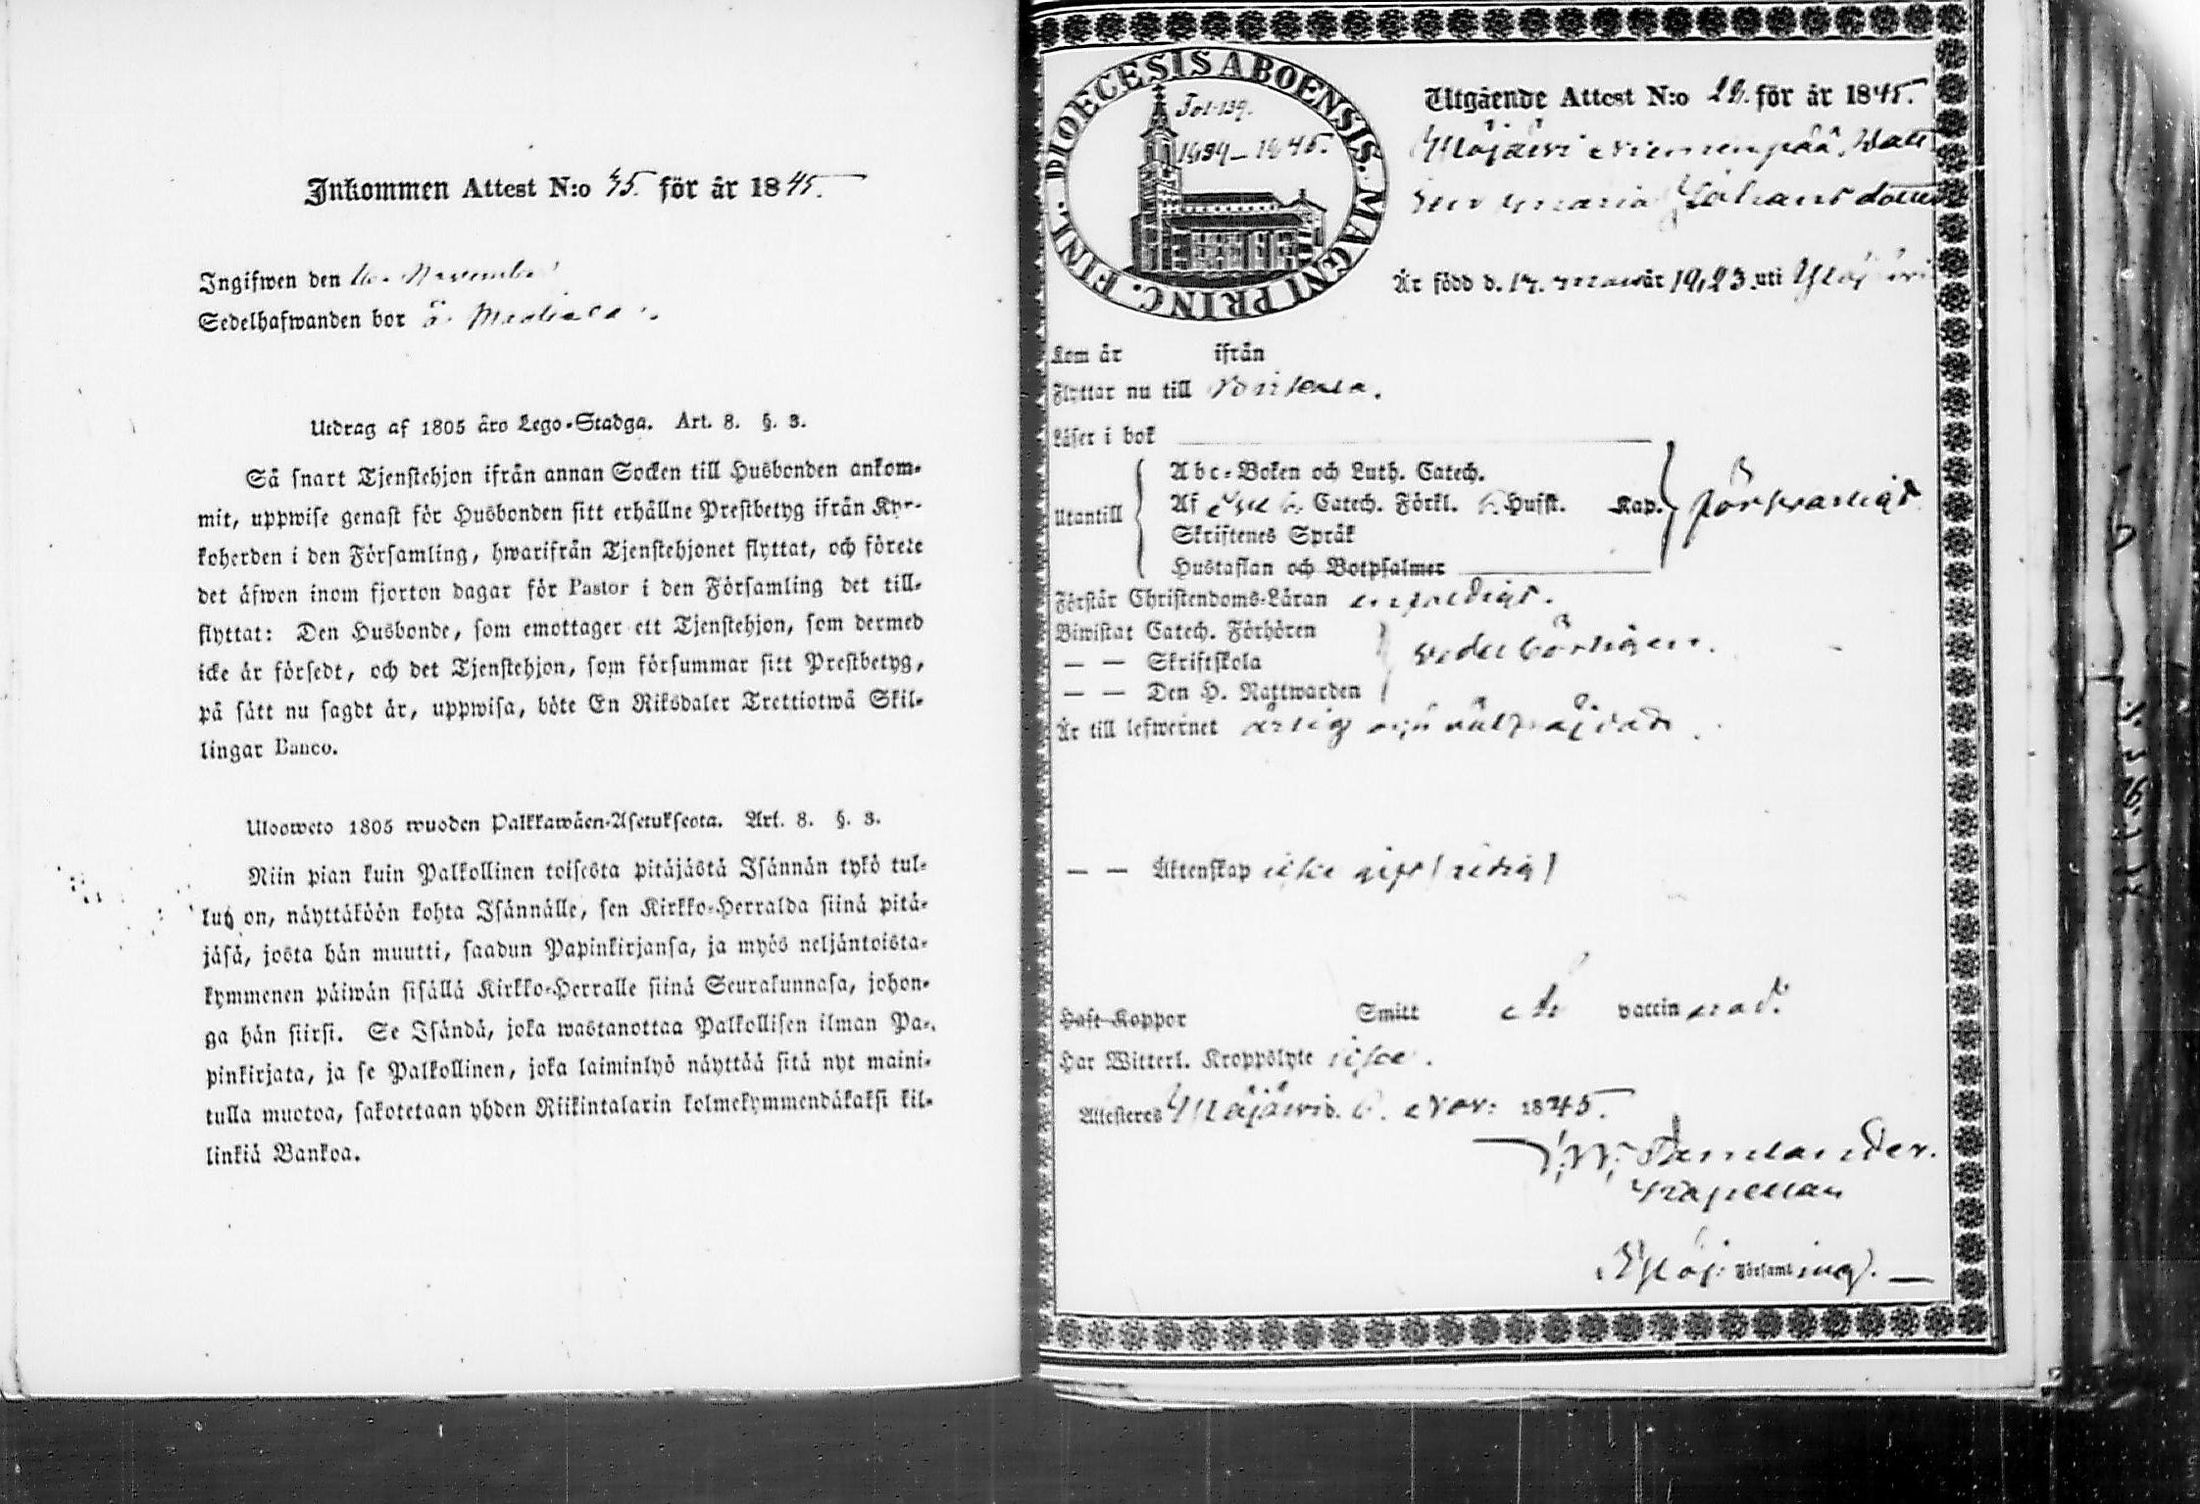 Inkommen Attest N:o 35. för år 1845.
Ingifwen den 10. November
Sedelhafwanden bor å
Utdrag af 1805 års Lego-Stadga. Art. 8. §. 3.
Så snart Tjenstehjon ifrån annan Socken till Husbonden ankom-
mit, uppwise genast för Husbonden sitt erhållne Prestbetyg ifrån Kyr-
koherden i den Församling, hwarifrån Tjenstehjonet flyttat, och förete
det äfwen inom fjorton dagar för Pastor i den Församling det till-
flyttat: Den Husbonde, som emottager ett Tjenstehjon, som dermed
icke är försedt, och det Tjenstehjon, som försummar sitt Prestbetyg,
på sätt nu sagdt är, uppwisa, böte En Riksdaler Trettiotwå Skil-
lingar Banco.
Ulosweto 1805 wuoden Palkkawäen-Asetuksesta. Art. 8. §. 3.
Niin pian kuin Palkollinen toisesta pitäjästä Isännän tykö tul-
lut on, näyttäköön kohta Isännälle, sen Kirkko-Herralda siinä pitä-
jäsä, josta hän muutti, saadun Papinkirjansa, ja myös neljäntoista-
kymmenen päiwän sisällä Kirkko-Herralle siinä Seurakunnasa, johon-
ga hän siirsi. Se Isändä, joka wastanottaa Palkollisen ilman Pa-
pinkirjata, ja se Palkollinen, joka laiminlyö näyttää sitä nyt maini-
tulla muotoa, sakotetaan yhden Riikintalarin kolmekymmendäkaksi kil-
linkiä Bankoa.
FINL. DIOECESIS ABOENSIS. MAGNI PRINC.
Fol. 139.
1839–1845.
Utgående Attest N:o 20. för år 1845.
Ylöjärvi Niemenpää,
Maria Johans dotter
Är född d. 17. mars år 1823. uti Ylöjärvi
Kom år ifrån
Flyttar nu till
Läser i bok
Utantill
Abc-Boken och Luth. Catech.
Af Catech. Förkl. Husst. Kap.
försvarligt
Skriftenes Språk
Hustaflan och Botpsalmer
Förstår Christendoms-Läran enfaldigt.
Biwistat Catech. Förhören
— — Skriftskola
vederbörligen.
— — Den H. Nattwarden
Är till lefwernet ärlig och välfrejdad.
— — Äktenskap icke gift (ledig)
Haft Koppor Smitt är vaccinerad.
Har Witterl. Kroppslyte icke.
Attesteres Ylöjärvi d. 6. Nov: 1845.
Kapellan
Ylöj: Församling.